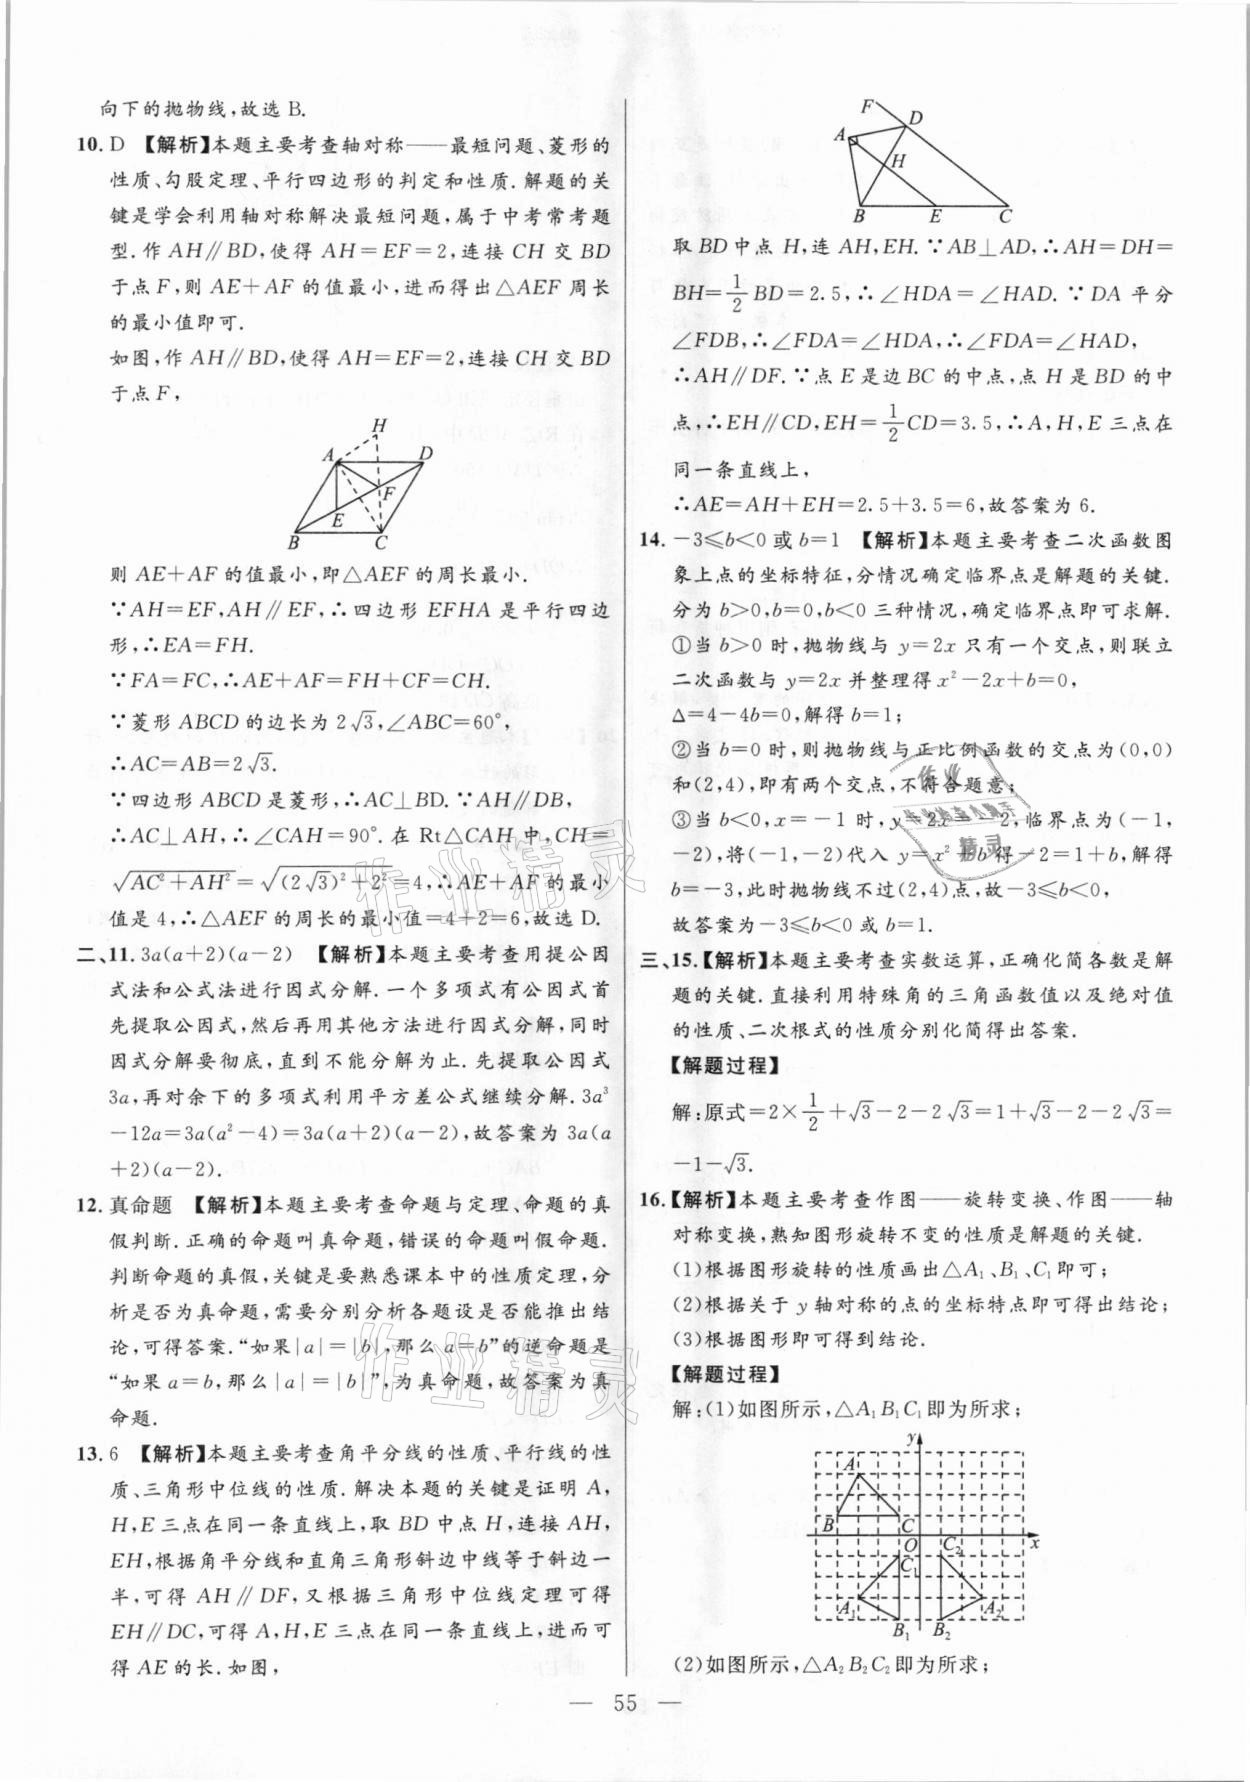 向下的抛物线,故选 B.
10. D 【解析】本题主要考查轴对称——最短问题、菱形的
性质、勾股定理、平行四边形的判定和性质.解题的关
键是学会利用轴对称解决最短问题,属于中考常考题
型.作 AH∥BD,使得 AH=EF=2,连接 CH 交 BD
于点 F,则 AE+AF 的值最小,进而得出△AEF 周长
的最小值即可.
如图,作 AH∥BD,使得 AH=EF=2,连接 CH 交 BD
于点 F,
H
A D
F
E
B C
则 AE+AF 的值最小,即△AEF 的周长最小.
∵AH=EF,AH∥EF,∴四边形 EFHA 是平行四边
形,∴EA=FH.
∵FA=FC,∴AE+AF=FH+CF=CH.
∵菱形 ABCD 的边长为 2√3,∠ABC=60°,
∴AC=AB=2√3.
∵四边形 ABCD 是菱形,∴AC⊥BD.∵AH∥DB,
∴AC⊥AH,∴∠CAH=90°.在 Rt△CAH 中,CH=
√(AC²+AH²)=√((2√3)²+2²)=4,∴AE+AF 的最小
值是 4,∴△AEF 的周长的最小值=4+2=6,故选 D.
二、11. 3a(a+2)(a-2) 【解析】本题主要考查用提公因
式法和公式法进行因式分解.一个多项式有公因式首
先提取公因式,然后再用其他方法进行因式分解,同时
因式分解要彻底,直到不能分解为止.先提取公因式
3a,再对余下的多项式利用平方差公式继续分解.3a³
-12a=3a(a²-4)=3a(a+2)(a-2),故答案为 3a(a
+2)(a-2).
12. 真命题 【解析】本题主要考查命题与定理、命题的真
假判断.正确的命题叫真命题,错误的命题叫假命题.
判断命题的真假,关键是要熟悉课本中的性质定理,分
析是否为真命题,需要分别分析各题设是否能推出结
论,可得答案.“如果|a|=|b|,那么 a=b”的逆命题是
“如果 a=b,那么|a|=|b|”,为真命题,故答案为真
命题.
13. 6 【解析】本题主要考查角平分线的性质、平行线的性
质、三角形中位线的性质.解决本题的关键是证明 A,
H,E 三点在同一条直线上,取 BD 中点 H,连接 AH,
EH,根据角平分线和直角三角形斜边中线等于斜边一
半,可得 AH∥DF,又根据三角形中位线定理可得
EH∥DC,可得 A,H,E 三点在同一条直线上,进而可
得 AE 的长.如图,
F D
A
H
B E C
取 BD 中点 H,连 AH,EH.∵AB⊥AD,∴AH=DH=
BH=1/2 BD=2.5,∴∠HDA=∠HAD.∵DA 平分
∠FDB,∴∠FDA=∠HDA,∴∠FDA=∠HAD,
∴AH∥DF.∵点 E 是边 BC 的中点,点 H 是 BD 的中
点,∴EH∥CD,EH=1/2 CD=3.5,∴A,H,E 三点在
同一条直线上,
∴AE=AH+EH=2.5+3.5=6,故答案为 6.
14. -3≤b<0 或 b=1 【解析】本题主要考查二次函数图
象上点的坐标特征,分情况确定临界点是解题的关键.
分为 b>0,b=0,b<0 三种情况,确定临界点即可求解.
①当 b>0 时,抛物线与 y=2x 只有一个交点,则联立
二次函数与 y=2x 并整理得 x²-2x+b=0,
Δ=4-4b=0,解得 b=1;
②当 b=0 时,则抛物线与正比例函数的交点为(0,0)
和(2,4),即有两个交点,不符合题意;
③当 b<0,x=-1 时,y=2x=-2,临界点为(-1,
-2),将(-1,-2)代入 y=x²+b 得-2=1+b,解得
b=-3,此时抛物线不过(2,4)点,故-3≤b<0,
故答案为-3≤b<0 或 b=1.
三、15.【解析】本题主要考查实数运算,正确化简各数是解
题的关键.直接利用特殊角的三角函数值以及绝对值
的性质、二次根式的性质分别化简得出答案.
【解题过程】
解:原式=2×1/2+√3-2-2√3=1+√3-2-2√3=
-1-√3.
16.【解析】本题主要考查作图——旋转变换、作图——轴
对称变换,熟知图形旋转不变的性质是解题的关键.
(1)根据图形旋转的性质画出△A₁、B₁、C₁即可;
(2)根据关于 y 轴对称的点的坐标特点即可得出结论;
(3)根据图形即可得到结论.
【解题过程】
解:(1)如图所示,△A₁B₁C₁即为所求;
y
A
B C
O x
C₁ C₂
A₁ A₂
B₁ B₂
(2)如图所示,△A₂B₂C₂即为所求;
— 55 —
作业精灵
作业精灵
作业
精灵